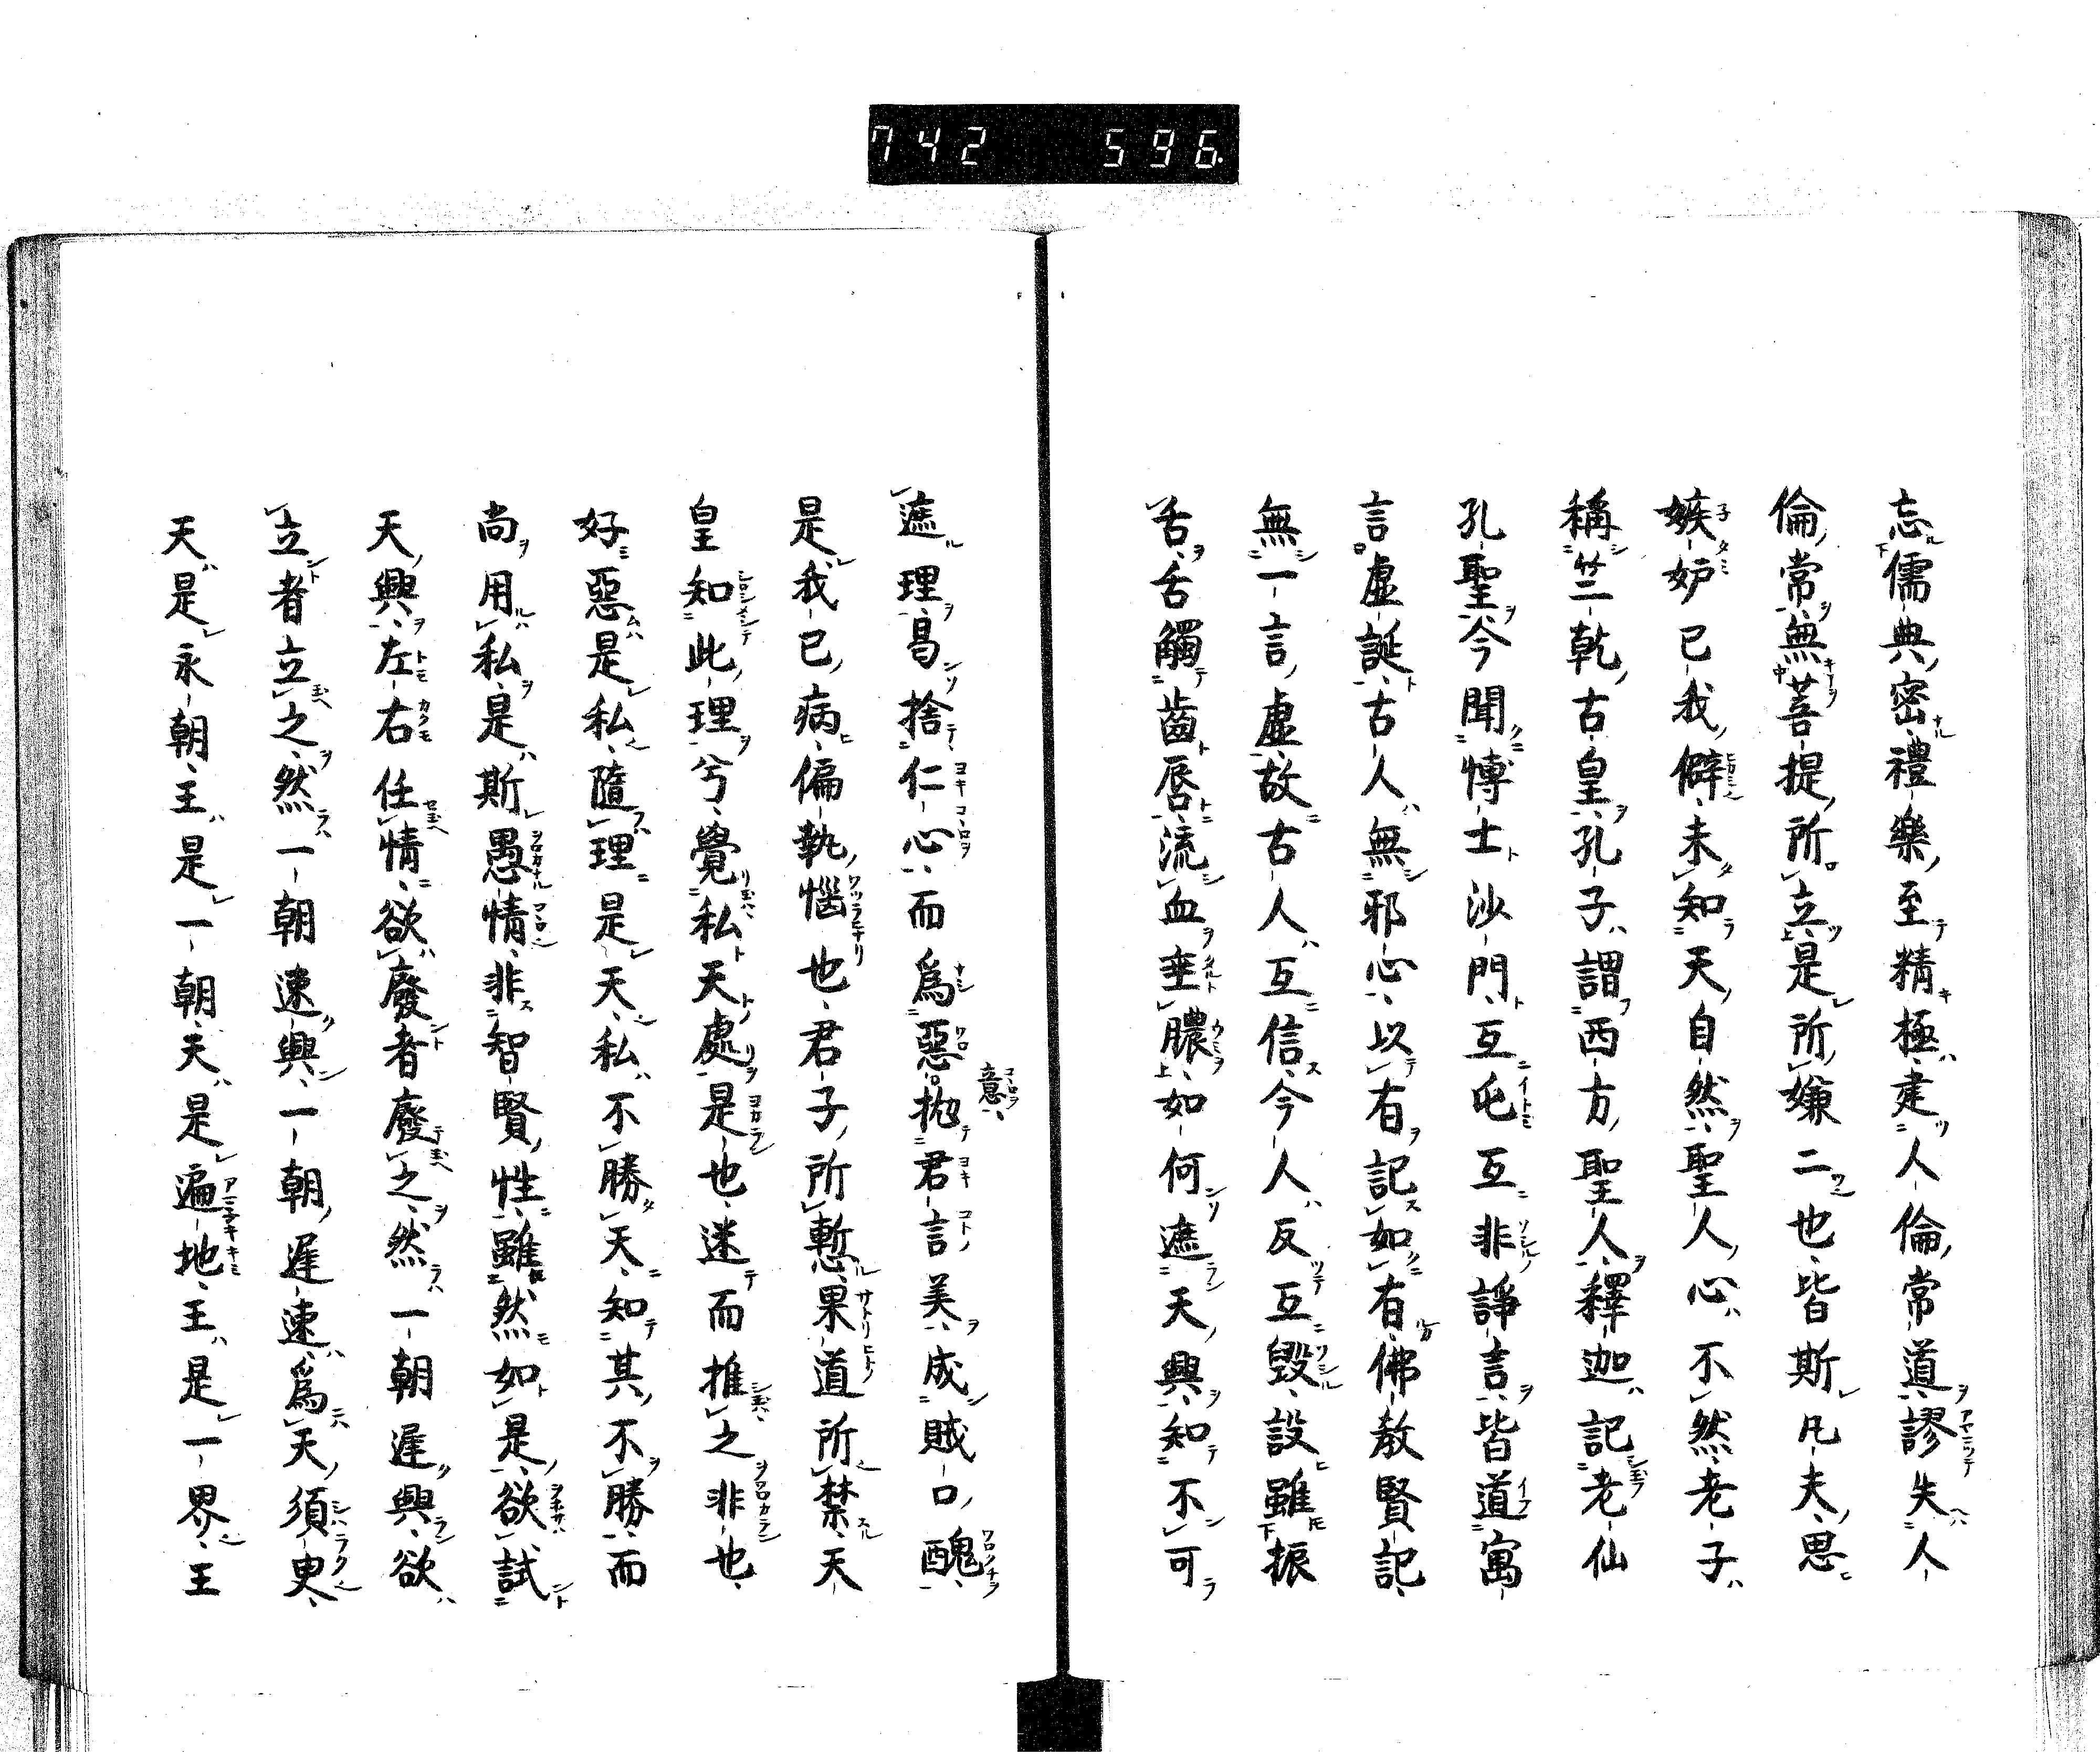 742 596.
忘儒典密禮樂至精極建人倫常道謬失人
倫常無菩提所立是所嫌二也皆斯凡夫思
嫉妒已我僻未知天自然聖人心不然老子
稱竺乾古皇孔子謂西方聖人釋迦記老仙
孔聖今聞博士沙門互吡互非諍言皆道寓
言虛誕古人無邪心以有記如有佛教賢記
無一言虛故古人互信今人反互毀設雖振
舌舌觸齒唇流血垂膿如何遮天興知不可
遮理曷捨仁心而爲惡意拋君言美成賊口醜
是我已病偏執惱也君子所慙果道所禁天
皇知此理兮覺私天處是也迷而推之非也
好惡是私隨理是天私不勝天知其不勝而
尚用私是斯愚情非智賢性雖然如是欲試
天興左右任情欲廢者廢之然一朝遲興欲
立者立之然一朝速興一朝遲速爲天須臾
天是永朝王是一朝天是遍地王是一界王